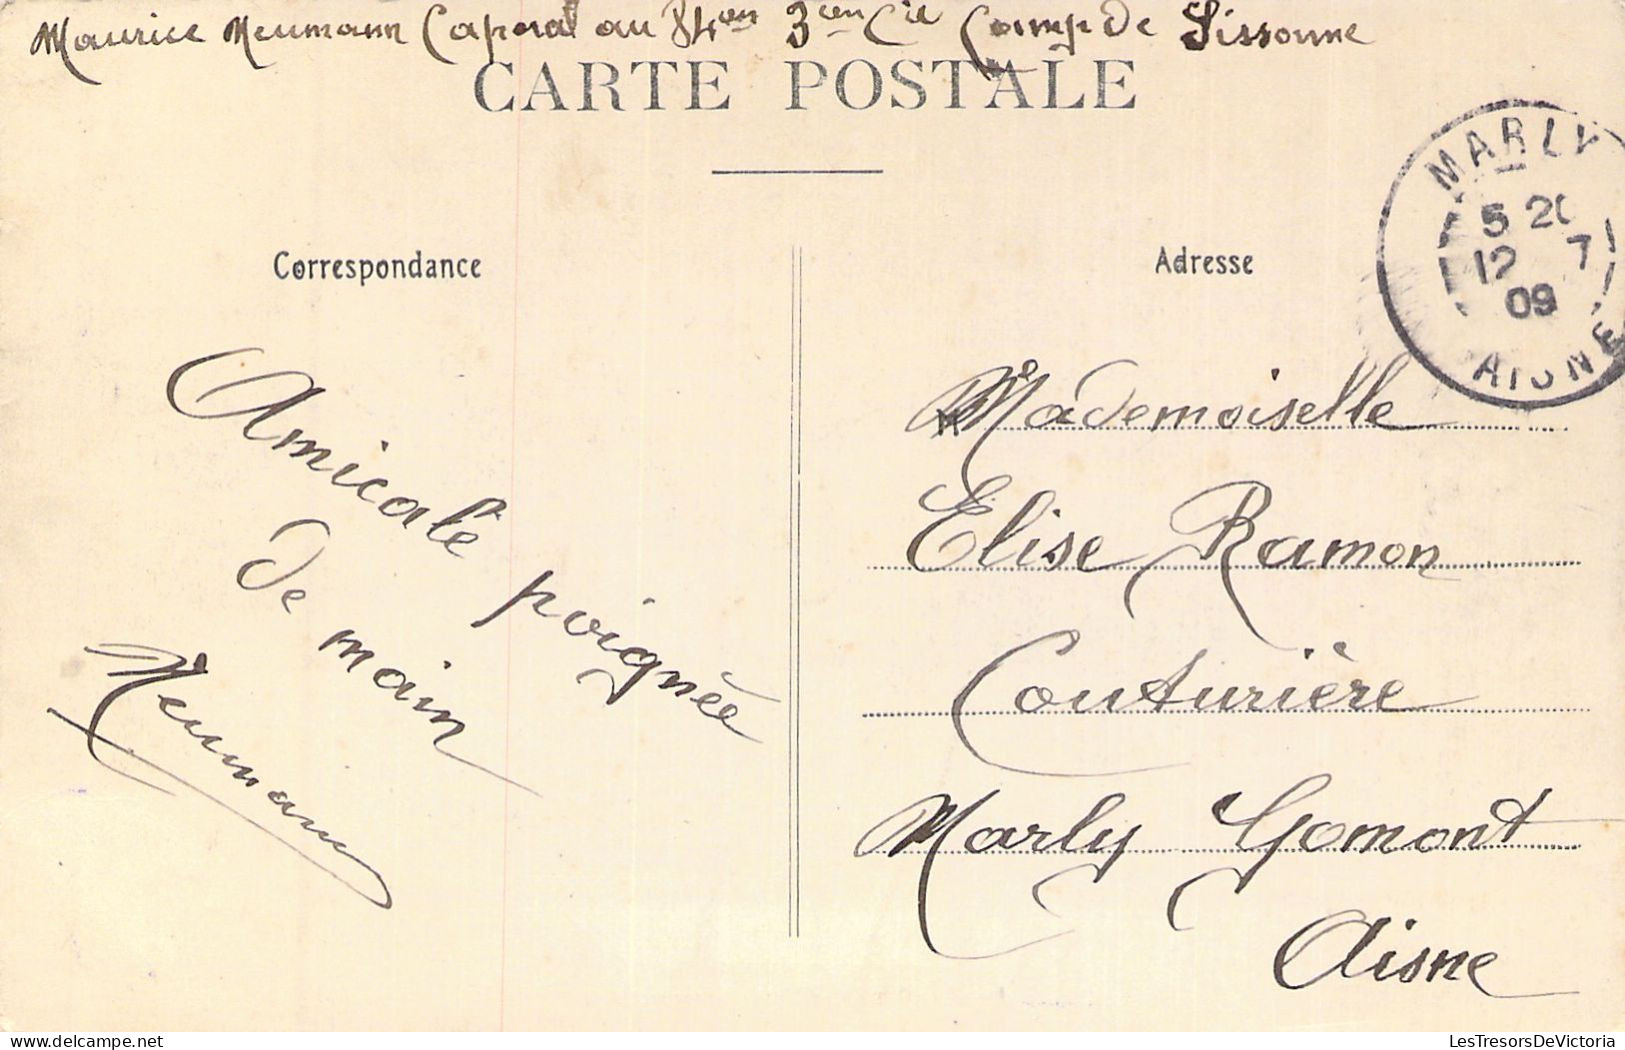 Maurice Neumann Caporal au 84em 3em Cie Camp de Sissonne
CARTE POSTALE
MARLY
5 20
12 7
09
AISNE
Correspondance
Adresse
Amicale poignée
de main
Neumann
Mademoiselle
Elise Ramon
Couturière
Marly Gomont
Aisne
LesTresorsDeVictoria